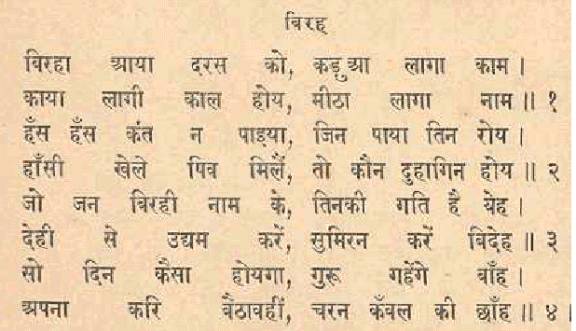 बिरह
बिरहा आया दरस को, कड़ुआ लागा काम ।
काया लागी काल होय, मीठा लागा नाम ॥ १
हँस हँस कंत न पाइया, जिन पाया तिन रोय ।
हाँसी खेले पिव मिलैं, तो कौन दुहागिन होय ॥ २
जो जन बिरही नाम के, तिनकी गति है येह ।
देही से उद्यम करें, सुमिरन करें बिदेह ॥ ३
सो दिन कैसा होयगा, गुरू गहेंगे बाँह ।
अपना करि बैठावहीं, चरन कँवल की छाँह ॥ ४ ।